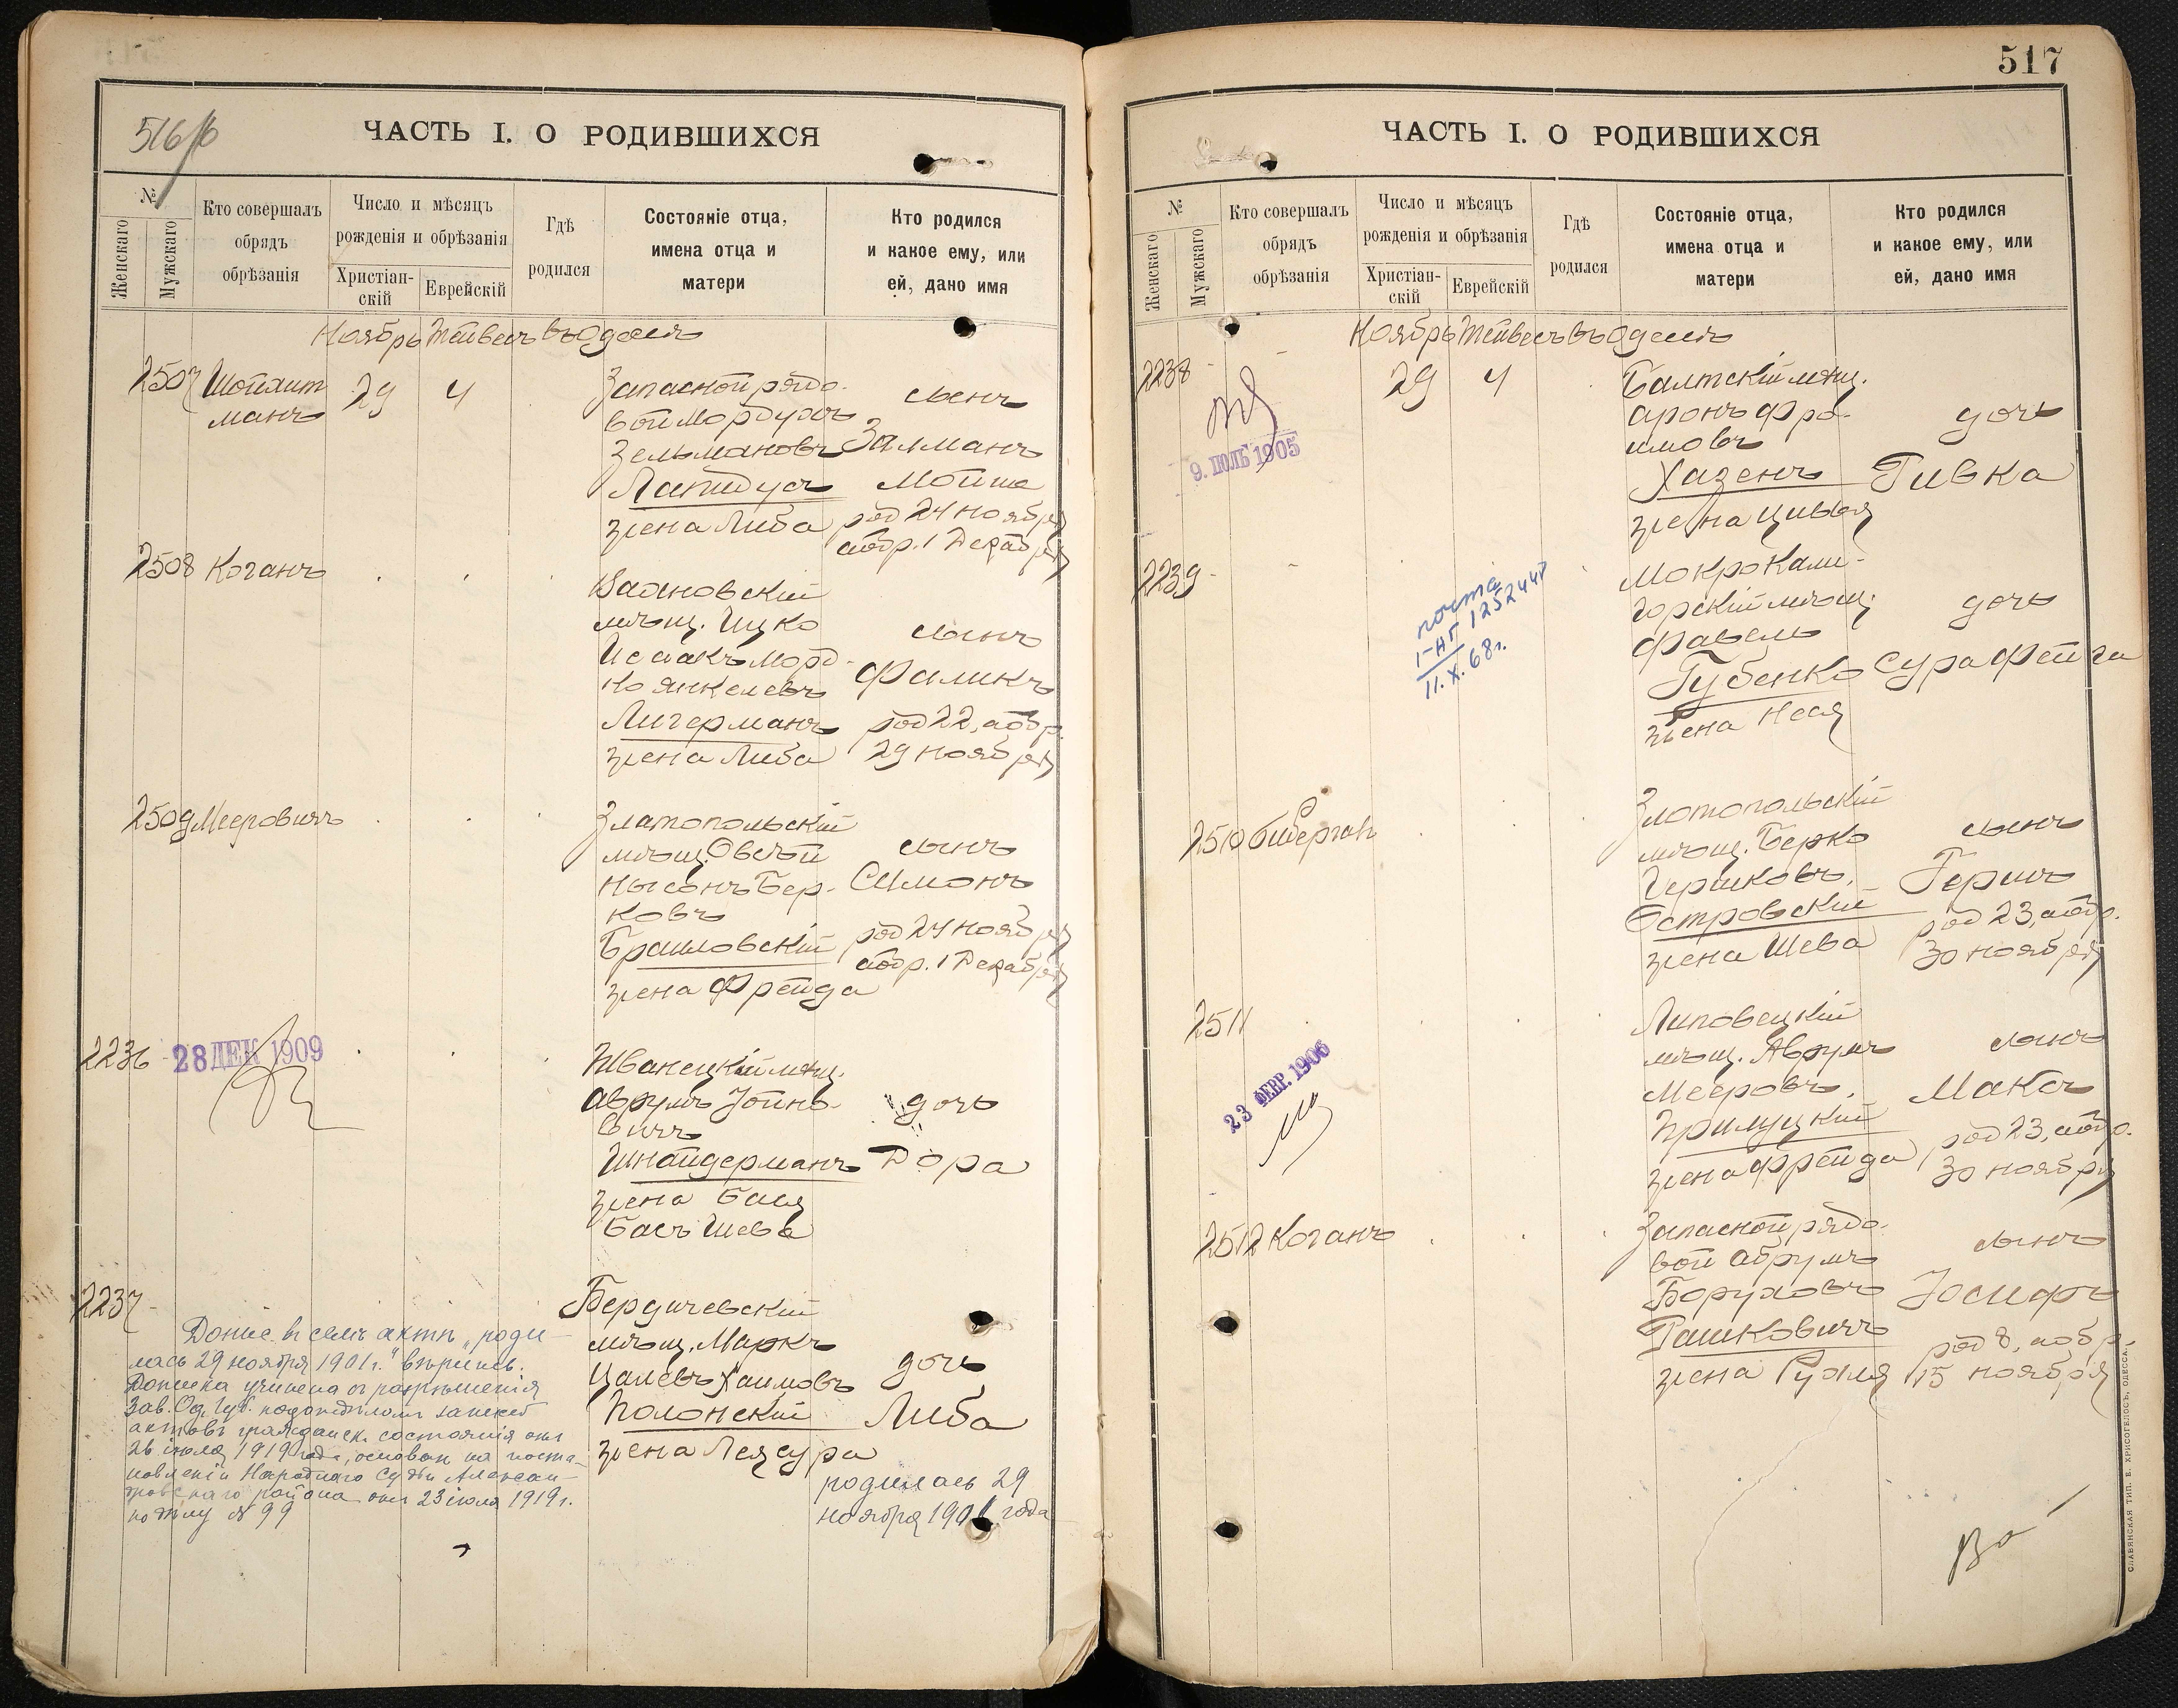 516/б
ЧАСТЬ I. О РОДИВШИХСЯ
№
Женскаго
Мужскаго
Кто совершалъ
обрядъ
обрѣзанія
Число и мѣсяцъ
рожденія и обрѣзанія
Христіан-
скій
Еврейскій
Гдѣ
родился
Состояніе отца,
имена отца и
матери
Кто родился
и какое ему, или
ей, дано имя
Ноябрь Тейвесъ въ Одессѣ
2507 Шойхит
манъ
29 4
Запасной рядо-
вой Мордухъ
Зельмановъ
Лапидусъ
жена Либа
сынъ
Залманъ
Мойше
род 24 ноября
обр. 1 Декабря
2508 Коганъ
мѣщ. Ицко
Исаакъ Мордко
Янкелевъ
Лигерманъ
жена Либа
сынъ
Фаликъ
род 22, обр.
29 ноября
2509 Мееровичъ
Златопольскій
мѣщ. Овсѣй
Нысонъ Бер-
ковъ
Браиловскій
жена Фрейда
сынъ
Симонъ
род 24 ноября
обр. 1 Декабря
2236
28 ДЕК 1909
Жванецкій мѣщ.
Аврумъ Іойно-
вичъ
Шнайдерманъ
жена Бася
Бась Шева
дочь
Дора
2237
Бердичевскій
мѣщ. Маркъ
Цалевъ Хаимовъ
Полонскій
жена Лея Сура
дочь
Либа
родилась 29
ноября 1901 года
Допис. въ семъ актѣ „роди-
лась 29 ноября 1901 г." вѣрить.
Дописка учинена съ разрѣшенія
Зав. Од. Губ. подотдѣломъ записей
актовъ гражданск. состоянія отъ
26 іюля 1919 года, основан. на поста-
новленіи Народнаго Судьи Алексан-
дровскаго района отъ 23 іюля 1919 г.
по дѣлу № 99
517
ЧАСТЬ I. О РОДИВШИХСЯ
№
Женскаго
Мужскаго
Кто совершалъ
обрядъ
обрѣзанія
Число и мѣсяцъ
рожденія и обрѣзанія
Христіан-
скій
Еврейскій
Гдѣ
родился
Состояніе отца,
имена отца и
матери
Кто родился
и какое ему, или
ей, дано имя
Ноябрь Тейвесъ въ Одессѣ
2238 - -
9. ІЮЛЬ 1905
29 4
Балтскій мѣщ.
Аронъ Фро-
имовъ
Хазенъ
жена Цивья
дочь
Ривка
2239 - -
почта
I-НГ 125244
11.X.68г.
Мокро Кали-
горскій мѣщ.
Файвель
Губенко
жена Неся
дочь
Сура Фейга
2510
Златопольскій
мѣщ. Берко
Гершковъ
Островскій
жена Шева
сынъ
Гершъ
род 23, обр.
30 ноября
2511
23 ФЕВР. 1906
Липовецкій
мѣщ. Аврумъ
Мееровъ
Прилуцкій
жена Фрейда
сынъ
Максъ
род 23, обр.
30 ноября
2512 Коганъ
Запасной рядо-
вой Абрумъ
Боруховъ
Рашковичъ
жена Рухля
сынъ
Іосифъ
род 8, обр.
15 ноября
СЛАВЯНСКАЯ ТИП. Е. ХРИСОГЕЛОСЪ, ОДЕССА.